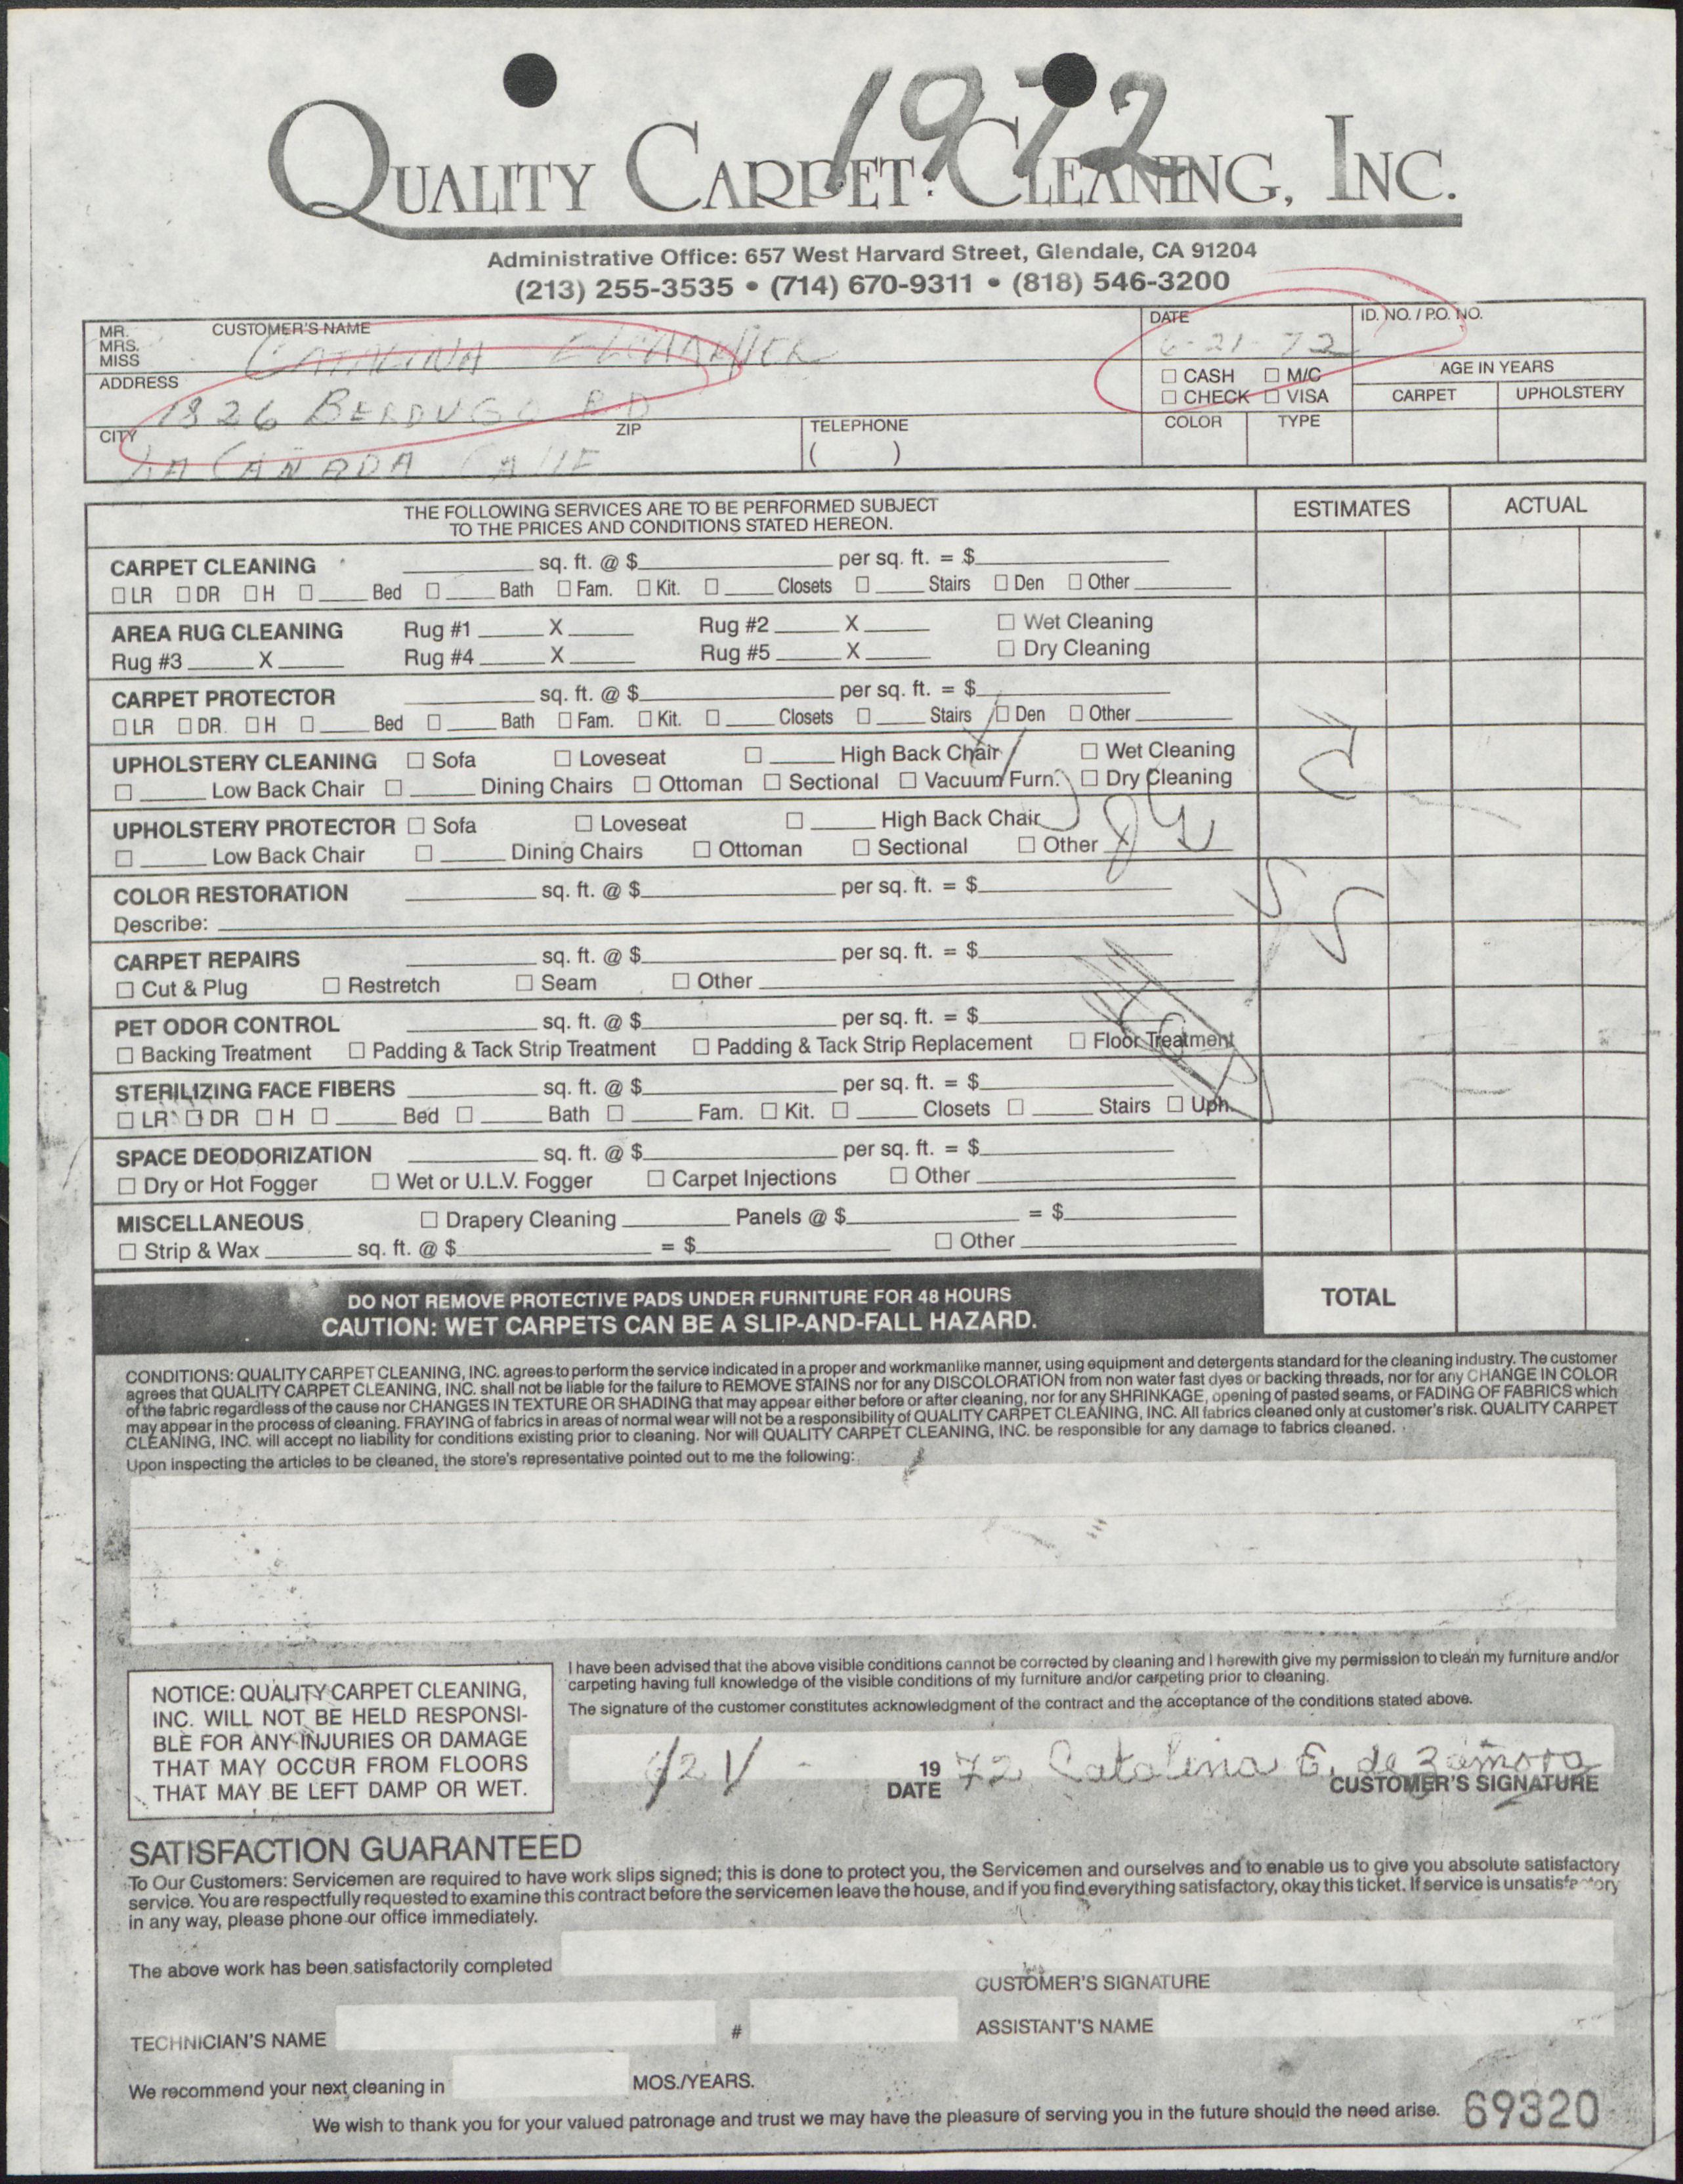 1972
QUALITY CARPET CLEANING, INC.
Administrative Office: 657 West Harvard Street, Glendale, CA 91204
(213) 255-3535 • (714) 670-9311 • (818) 546-3200
MR. MRS. MISS CUSTOMER'S NAME CATALINA
DATE 6-21-72 ID. NO. / P.O. NO.
☐ CASH ☐ M/C AGE IN YEARS
☐ CHECK ☐ VISA CARPET UPHOLSTERY
ADDRESS 1826 BERDUGO RD
COLOR TYPE
CITY ZIP TELEPHONE ( )
LA CAÑADA
THE FOLLOWING SERVICES ARE TO BE PERFORMED SUBJECT
TO THE PRICES AND CONDITIONS STATED HEREON.
ESTIMATES ACTUAL
CARPET CLEANING sq. ft. @ $ per sq. ft. = $
☐ LR ☐ DR ☐ H ☐ Bed ☐ Bath ☐ Fam. ☐ Kit. ☐ Closets ☐ Stairs ☐ Den ☐ Other
AREA RUG CLEANING Rug #1 X Rug #2 X ☐ Wet Cleaning
Rug #3 X Rug #4 X Rug #5 X ☐ Dry Cleaning
CARPET PROTECTOR sq. ft. @ $ per sq. ft. = $
☐ LR ☐ DR. ☐ H ☐ Bed ☐ Bath ☐ Fam. ☐ Kit. ☐ Closets ☐ Stairs ☐ Den ☐ Other
UPHOLSTERY CLEANING ☐ Sofa ☐ Loveseat ☐ High Back Chair ☐ Wet Cleaning
☐ Low Back Chair ☐ Dining Chairs ☐ Ottoman ☐ Sectional ☐ Vacuum Furn. ☐ Dry Cleaning
UPHOLSTERY PROTECTOR ☐ Sofa ☐ Loveseat ☐ High Back Chair
☐ Low Back Chair ☐ Dining Chairs ☐ Ottoman ☐ Sectional ☐ Other
COLOR RESTORATION sq. ft. @ $ per sq. ft. = $
Describe:
CARPET REPAIRS sq. ft. @ $ per sq. ft. = $
☐ Cut & Plug ☐ Restretch ☐ Seam ☐ Other
PET ODOR CONTROL sq. ft. @ $ per sq. ft. = $
☐ Backing Treatment ☐ Padding & Tack Strip Treatment ☐ Padding & Tack Strip Replacement ☐ Floor Treatment
STERILIZING FACE FIBERS sq. ft. @ $ per sq. ft. = $
☐ LR ☐ DR ☐ H ☐ Bed ☐ Bath ☐ Fam. ☐ Kit. ☐ Closets ☐ Stairs ☐ Uph.
SPACE DEODORIZATION sq. ft. @ $ per sq. ft. = $
☐ Dry or Hot Fogger ☐ Wet or U.L.V. Fogger ☐ Carpet Injections ☐ Other
MISCELLANEOUS ☐ Drapery Cleaning Panels @ $ = $
☐ Strip & Wax sq. ft. @ $ = $ ☐ Other
DO NOT REMOVE PROTECTIVE PADS UNDER FURNITURE FOR 48 HOURS
CAUTION: WET CARPETS CAN BE A SLIP-AND-FALL HAZARD.
TOTAL
CONDITIONS: QUALITY CARPET CLEANING, INC. agrees to perform the service indicated in a proper and workmanlike manner, using equipment and detergents standard for the cleaning industry. The customer
agrees that QUALITY CARPET CLEANING, INC. shall not be liable for the failure to REMOVE STAINS nor for any DISCOLORATION from non water fast dyes or backing threads, nor for any CHANGE IN COLOR
of the fabric regardless of the cause nor CHANGES IN TEXTURE OR SHADING that may appear either before or after cleaning, nor for any SHRINKAGE, opening of pasted seams, or FADING OF FABRICS which
may appear in the process of cleaning. FRAYING of fabrics in areas of normal wear will not be a responsibility of QUALITY CARPET CLEANING, INC. All fabrics cleaned only at customer's risk. QUALITY CARPET
CLEANING, INC. will accept no liability for conditions existing prior to cleaning. Nor will QUALITY CARPET CLEANING, INC. be responsible for any damage to fabrics cleaned.
Upon inspecting the articles to be cleaned, the store's representative pointed out to me the following:
I have been advised that the above visible conditions cannot be corrected by cleaning and I herewith give my permission to clean my furniture and/or
carpeting having full knowledge of the visible conditions of my furniture and/or carpeting prior to cleaning.
The signature of the customer constitutes acknowledgment of the contract and the acceptance of the conditions stated above.
NOTICE: QUALITY CARPET CLEANING,
INC. WILL NOT BE HELD RESPONSI-
BLE FOR ANY INJURIES OR DAMAGE
THAT MAY OCCUR FROM FLOORS
THAT MAY BE LEFT DAMP OR WET.
19 72 Catalina E. de Zamora
DATE CUSTOMER'S SIGNATURE
SATISFACTION GUARANTEED
To Our Customers: Servicemen are required to have work slips signed; this is done to protect you, the Servicemen and ourselves and to enable us to give you absolute satisfactory
service. You are respectfully requested to examine this contract before the servicemen leave the house, and if you find everything satisfactory, okay this ticket. If service is unsatisfactory
in any way, please phone our office immediately.
The above work has been satisfactorily completed
CUSTOMER'S SIGNATURE
TECHNICIAN'S NAME # ASSISTANT'S NAME
We recommend your next cleaning in MOS./YEARS.
We wish to thank you for your valued patronage and trust we may have the pleasure of serving you in the future should the need arise. 69320